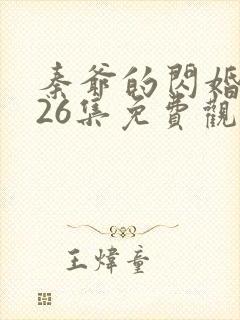 秦爺的閃婚
26集免費觀
王煒童